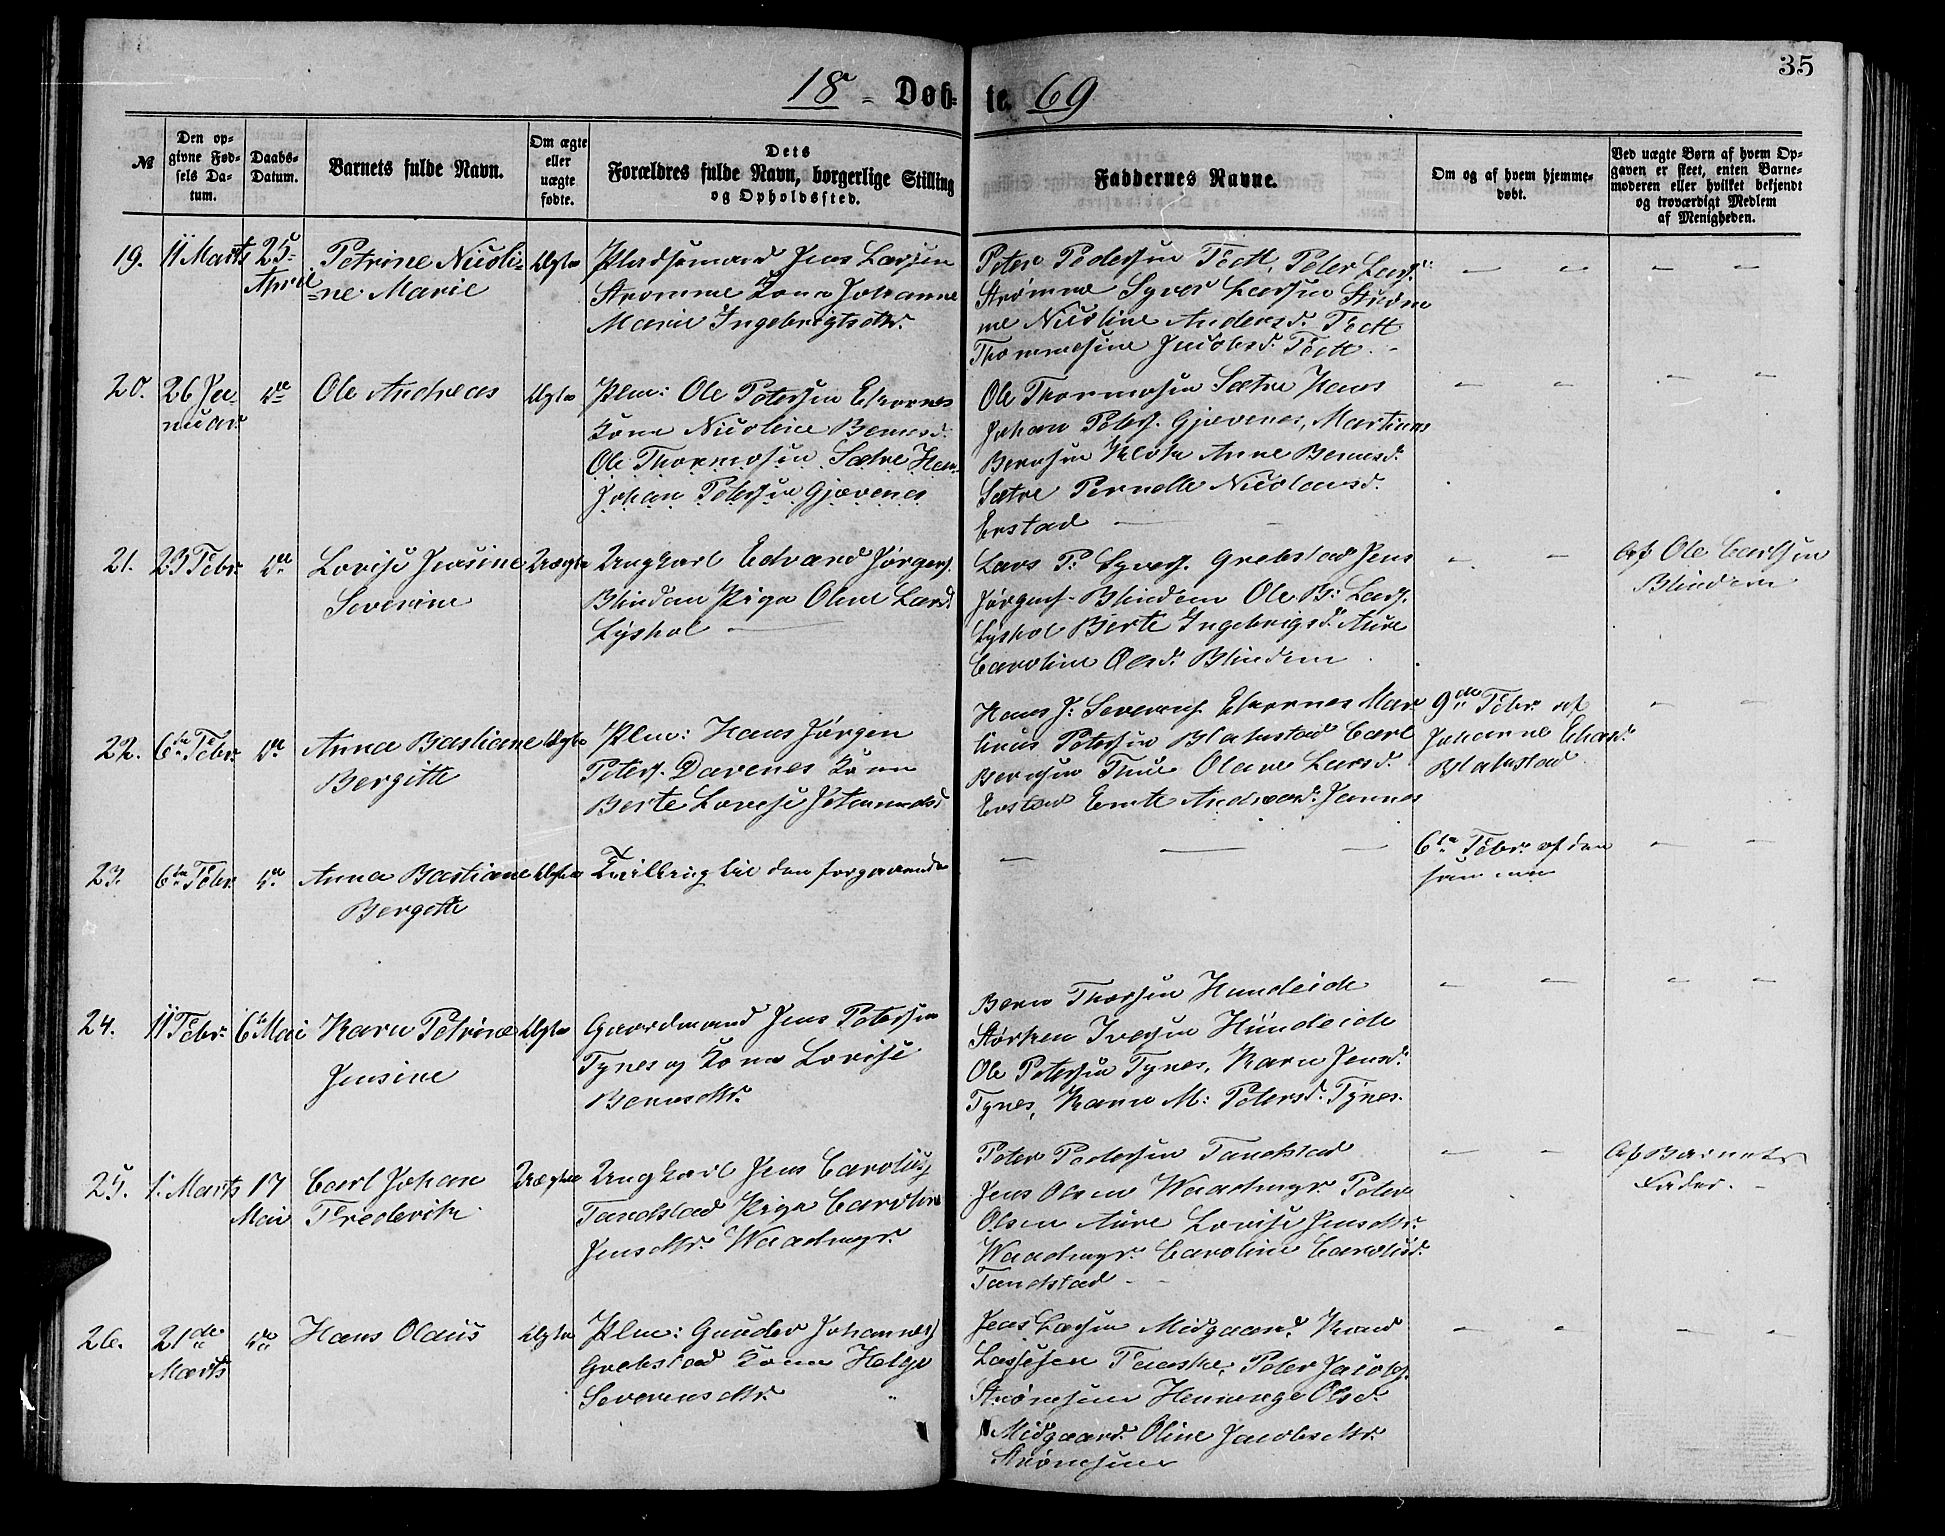 35
18 - Døb-
te. 69
№
Den op-
givne Fød-
sels Da-
tum.
Daabs-
Datum.
Barnets fulde Navn.
Om ægte
eller
uægte
fødte.
Dets
Forældres fulde Navn, borgerlige Stilling
og Opholdssted.
Faddernes Navne.
Om og af hvem hjemme-
døbt.
Ved uægte Børn af hvem Op-
gaven er skeet, enten Barne-
moderen eller hvilket bekjendt
og troværdigt Medlem
af Menigheden.
19. 11 Marts 25 April
Petrine Nicoli-
ne Marie
Ægte
Pladsmand Jens Larsen
Strømme Kone Johanne
Marie Ingebrigtsdtr.
Peter Pedersen Tøtt, Peter Lars.
Strømme Syver Larsen Strøm
me Nicoline Andersd. Tøtt
Thommesine Jacobsd. Tøtt
20. 26 Ja-
nuar
Do
Ole Andreas
Ægte
Plm: Ole Petersen Ekornes
Kone Nicoline Bernsd.
Ole Thormosen Sætre Hans
Johan Petersen Gjævenes
Ole Thormosen Sætre Hans
Johan Peters. Gjævenes, Martinus
Bernsen Klok Anne Bernsd.
Sætre Pernelle Nicolausd.
Erstad
21. 23 Febr. Do
Lovise Jensine
Severine
Uægte
Ungkarl Edvard Jørgens.
Blindem Pige Oline Larsd.
Lyshol
Lars P: Syvers. Grebstad Jens
Jørgens. Blindem Ole B: Lars.
Lyshol Berte Ingebrigsd. Aure
Caroline Olsd. Blindem
Af Ole Carlsen
Blindem
22. 6te Febr. Do
Anna Bastiane
Bergitte
Ægte
Plm: Hans Jørgen
Peters. Davenes Kone
Berte Lovise Petersd.
Hans J: Severins. Ekornes Mar
tinus Petersen Blakstad Carl
Bernsen Thue Olave Larsd.
Erstad Andreasd. Jarnes
9de Febr. af
Johanne
Blakstad
23. 6te Febr. Do
Anna Bastiane
Bergitte
Ægte
Tvilling til den foregaaende
6te Febr. af den
samme
24. 11 Febr. 6te Mai
Karn Petrine
Jensine
Ægte
Gaardmand Jens Petersen
Tynes og Kone Lovise
Bernsdtr.
Bern Thorsen Hundeide
Størken Iversen Hundeide
Ole Petersen Tynes, Karn Jensd.
Tynes, Karn M: Petersd. Tynes.
25. 1. Marts 17
Mai
Carl Johan
Frederik
Uægte
Ungkarl Jens Carolius
Tandstad Pige Caroline
Jensdtr. Waadmyr.
Peter Pedersen Tandstad
Jens Olsen Waadmyr. Peter
Olsen Aure Lovise Jensdtr.
Waadmyr. Caroline Caroliusd.
Tandstad
Af Barnets
Fader.
26. 21de
Marts
Do
Hans Olaus
Ægte
Plm: Gunder Johannes
Grebstad Kone Helge
Severinsdtr.
Jens Larsen Midgaard, Knud
Lassesen Fauske, Peter Jacobs.
Strømsem Olsd.
Midgaard Oline Jacobsdtr.
Strømsem